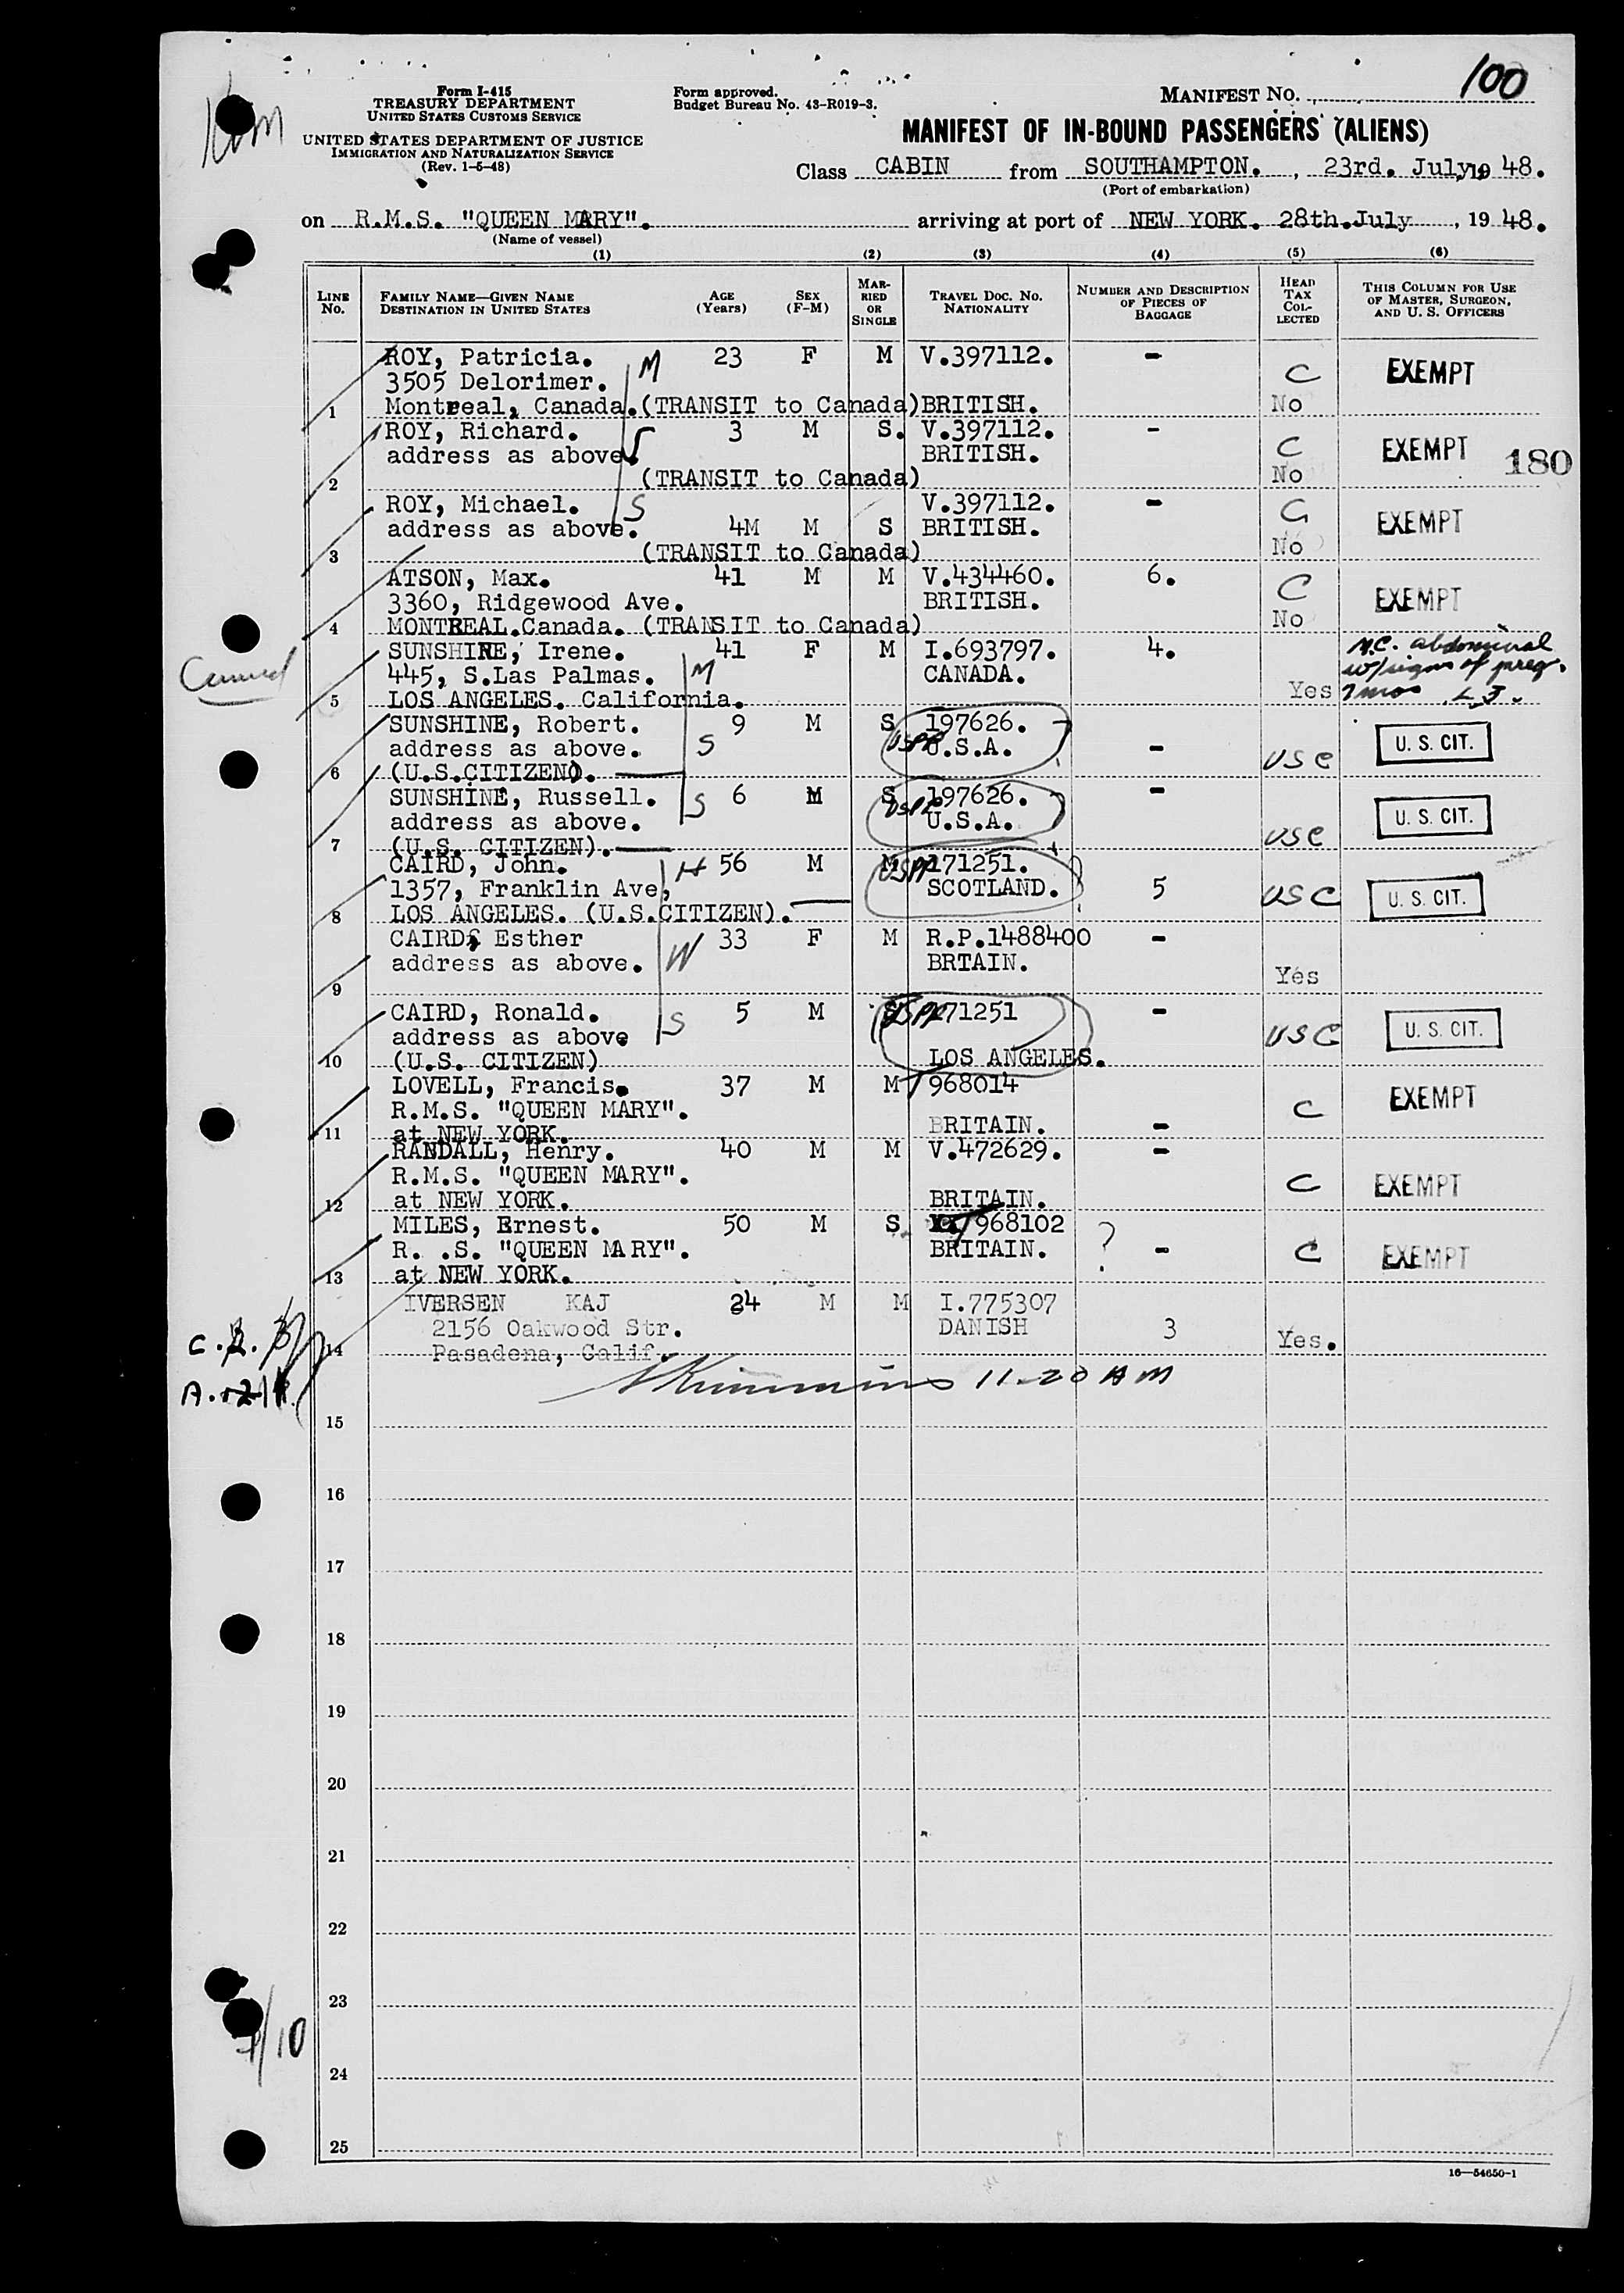 100
Form I-415
TREASURY DEPARTMENT
UNITED STATES CUSTOMS SERVICE
UNITED STATES DEPARTMENT OF JUSTICE
IMMIGRATION AND NATURALIZATION SERVICE
(Rev. 1-5-48)
Form approved.
Budget Bureau No. 43-R019-3.
MANIFEST NO.
MANIFEST OF IN-BOUND PASSENGERS (ALIENS)
Class CABIN from SOUTHAMPTON. , 23rd. July, 19 48.
(Port of embarkation)
on R.M.S. "QUEEN MARY". arriving at port of NEW YORK. 28th.July , 19 48.
(Name of vessel)
(1) (2) (3) (4) (5) (6)
LINE NO. FAMILY NAME—GIVEN NAME DESTINATION IN UNITED STATES AGE (Years) SEX (F-M) MARRIED OR SINGLE TRAVEL DOC. NO. NATIONALITY NUMBER AND DESCRIPTION OF PIECES OF BAGGAGE HEAD TAX COLLECTED THIS COLUMN FOR USE OF MASTER, SURGEON, AND U. S. OFFICERS
ROY, Patricia. M 23 F M V.397112. -
3505 Delorimer. C EXEMPT
1 Montreal, Canada.(TRANSIT to Canada) BRITISH. No
ROY, Richard. 3 M S. V.397112. -
address as above. S BRITISH. C EXEMPT 180
2 (TRANSIT to Canada) No
ROY, Michael. S V.397112. - C
address as above. 4M M S BRITISH. EXEMPT
3 (TRANSIT to Canada) No
ATSON, Max. 41 M M V.434460. 6. C
3360, Ridgewood Ave. BRITISH. EXEMPT
4 MONTREAL.Canada. (TRANSIT to Canada) No
SUNSHINE, Irene. 41 F M I.693797. 4. abdominal
445, S.Las Palmas. M CANADA. w/signs of preg.
5 LOS ANGELES. California. Yes 7 mos
SUNSHINE, Robert. 9 M S 197626.
address as above. S USPP U.S.A. - U. S. CIT.
6 (U.S.CITIZEN). USC
SUNSHINE, Russell. S 6 M S 197626. -
address as above. USPP U.S.A. U. S. CIT.
7 (U.S. CITIZEN). USC
CAIRD, John. H 56 M M USPP 171251.
1357, Franklin Ave, SCOTLAND. 5 USC U. S. CIT.
8 LOS ANGELES. (U.S.CITIZEN).
CAIRD, Esther 33 F M R.P.1488400 -
address as above. W BRTAIN.
9 Yes
CAIRD, Ronald. S 5 M S USPP 171251 -
address as above USC U. S. CIT.
10 (U.S. CITIZEN) LOS ANGELES.
LOVELL, Francis. 37 M M T 968014
R.M.S. "QUEEN MARY". C EXEMPT
11 at NEW YORK. BRITAIN. -
RANDALL, Henry. 40 M M V.472629. -
R.M.S. "QUEEN MARY". C EXEMPT
12 at NEW YORK. BRITAIN.
MILES, Ernest. 50 M S 968102
R. .S. "QUEEN MARY". BRITAIN. ? - C EXEMPT
13 at NEW YORK.
IVERSEN KAJ 24 M M I.775307
2156 Oakwood Str. DANISH 3 Yes.
14 Pasadena, Calif.
11-20 AM
15
16
17
18
19
20
21
22
23
24
25
/10
16—54650-1